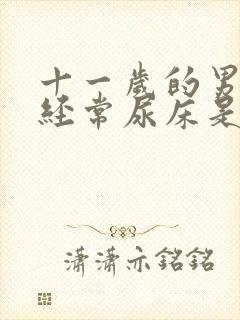 十一歲的男
經常尿床是
瀟瀟亦銘銘